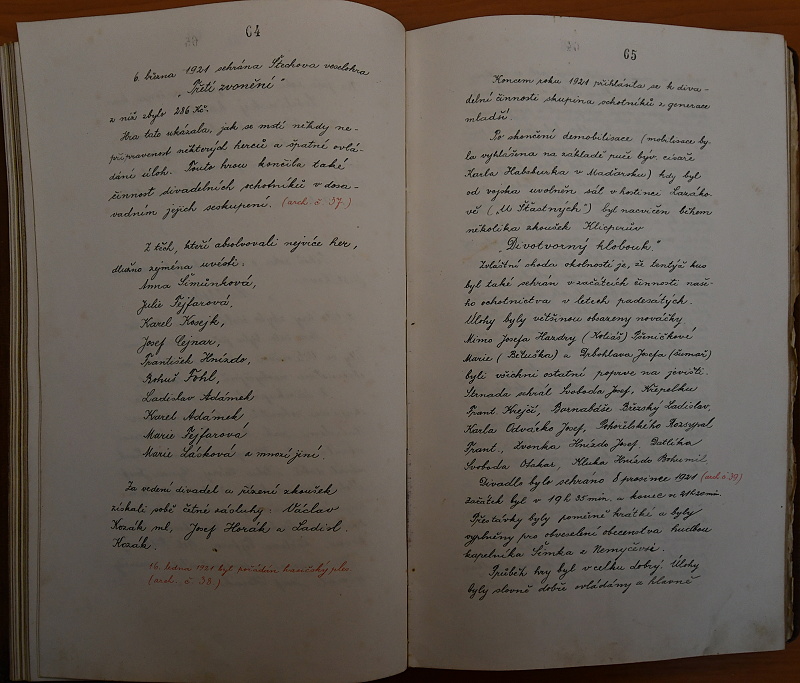 64
6. března 1921 sehrána Štechova veselohra
„Třetí zvonění"
z níž zbylo 286 Kč.
Hra tato ukázala, jak se mstí někdy ne-
připravenost některých herců a špatné ovlá-
dání úloh. Touto hrou končila také
činnost divadelních ochotníků v dosa-
vadním jejich seskupení. (arch. č 37.)
Z těch, kteří absolvovali nejvíce her,
dlužno zejména uvésti:
Anna Šimůnková,
Julie Fejfarová,
Karel Kosejk,
Josef Cejnar,
František Hnízdo,
Bohuš Föhl,
Ladislav Adámek
Karel Adámek
Marie Fejfarová
Marie Lásková a mnozí jiní.
Za vedení divadel a řízení zkoušek
získali sobě četné zásluhy: Václav
Kozák ml, Josef Horák a Ladisl.
Kozák.
16. ledna 1921 byl pořádán hasičský ples
(arch. č 38)
65
Koncem roku 1921 přihlásila se k diva-
delní činnosti skupina ochotníků z generace
mladší.
Po skončení demobilisace (mobilisace by-
la vyhlášena na základě puče býv. císaře
Karla Habsburka v Maďarsku) kdy byl
od vojska uvolněn sál v hostinci Lazáko-
vě („U Šťastných") byl nacvičen během
několika zkoušek Klicperův
„Divotvorný klobouk."
Zvláštní shoda okolností je, že tentýž kus
byl také sehrán v začátcích činnosti naše-
ho ochotnictva v letech padesátých.
Úlohy byly většinou obsazeny nováčky
Mimo Josefa Hazdry (Koliáš) Pšeničkové
Marie (Bětuška) a Drbohlava Josefa (šumař)
byli všichni ostatní poprvé na jevišti.
Strnada sehrál Svoboda Josef, Křepelku
Frant. Krejčí, Barnabáše Březský Ladislav,
Karla Odvárko Josef, Pohořelského Rozsypal
Frant., Zvonka Hnízdo Josef, Datlíka
Svoboda Otakar, Kluka Hnízdo Bohumil
Divadlo bylo sehráno 8 prosince 1921 (arch č 39)
začátek byl v 19 h 35 min. a konec v 21 h 20 min.
Přestávky byly poměrně krátké a byly
vyplněny pro obveselení obecenstva hudbou
kapelníka Šimka z Nemyčevsi.
Průběh hry byl v celku dobrý. Úlohy
byly slovně dobře ovládány a hlavně